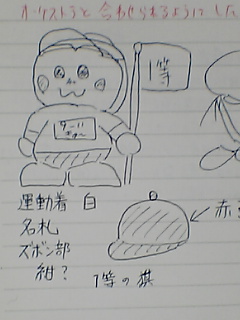 オーケストラと合わせられるようにした
1等
運動着 白
名札
ズボン部
紺?
赤
1等の旗